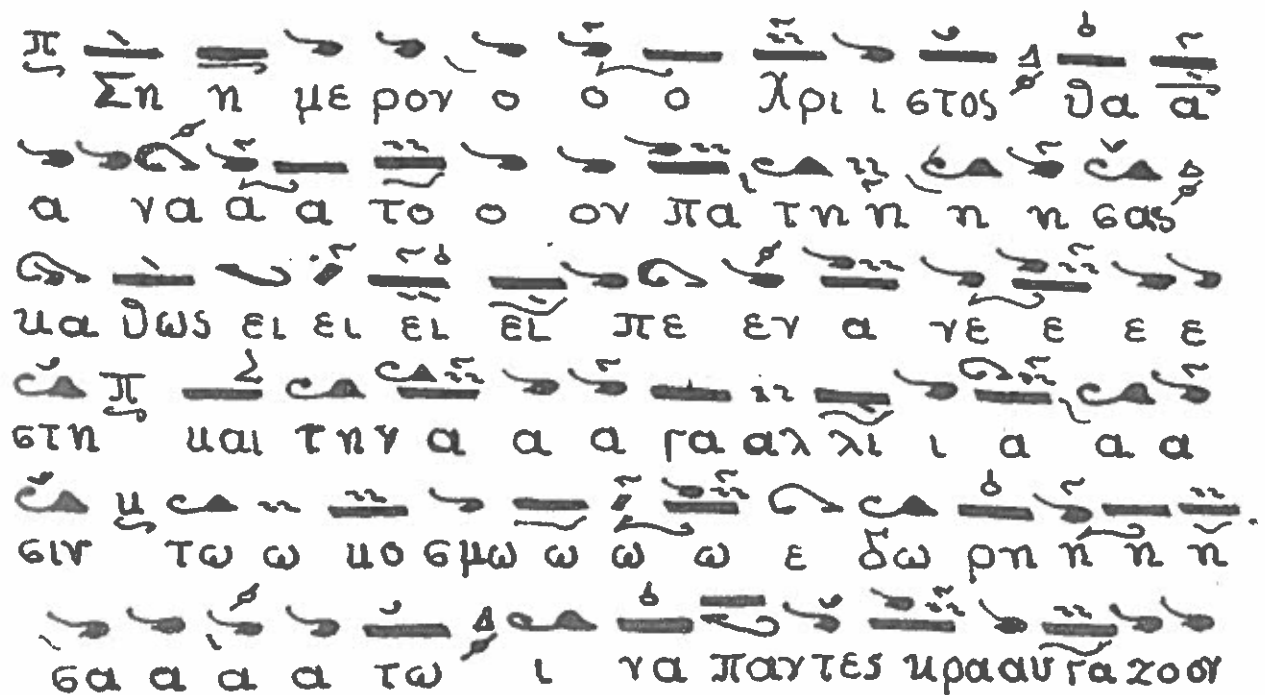 Ση η με ρον ο ο ο Χρι ι στος θα α
α να α α το ο ον πα τη η η η σας
κα θως ει ει ει ει πε εν α γε ε ε ε
στη και την α α α γα αλ λι ι α α α
σιν τω ω κο σμω ω ω ω ε δω ρη η η η
σα α α α τω ι να παντες κρααυγαζοον